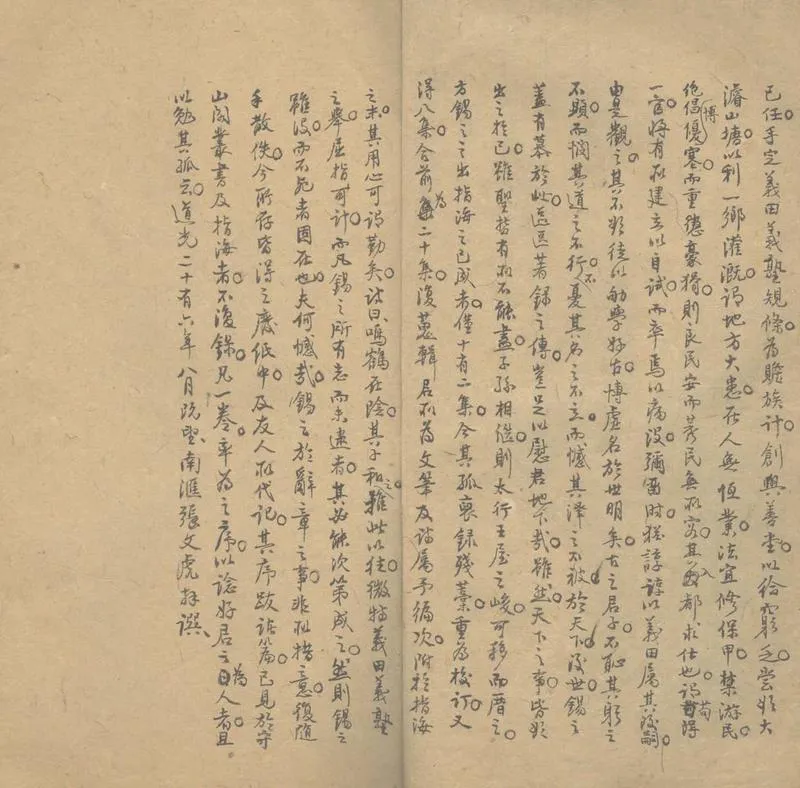 己任手定義田義塾規條為贍族計創興善堂以給窮乏嘗欲大
濬山塘以利一鄉灌溉謂地方大患在人無恆業法宜修保甲禁游民
絕倡優博塞而重懲豪猾則良民安而莠民無所容其入都求仕也謂苟得
一官將有所建立以自試而卒焉以病沒彌留時猶諄諄以義田屬其後嗣
由是觀之其不欲徒以劬學好古博虛名於世明矣古之君子不恥其躬之
不顯而憫其道之不行不憂其名之不立而憾其澤之不被於天下後世錫之
蓋有慕於此區區著錄之傳豈足以慰君地下哉雖然天下之事皆欲
出之於己雖聖哲有所不能盡子孫相繼則太行王屋之峻可移而厝之
方錫之之出指海之已成者僅十有二集今其孤裒錄殘藁重為校訂又
得八集合前為二十集復蒐輯君所為文筆及詩屬予編次附於指海
之末其用心可謂勤矣詩曰鳴鶴在陰其子和之雖此以往微特義田義塾
之舉屈指可計而凡錫之所有志而未逮者其必能次第成之然則錫之
雖沒而不死者固在也夫何憾哉錫之於辭章之事非所措意復隨
手散佚今所存皆得之廢紙中及友人所代記其序跋諸篇已見於守
山閣叢書及指海者不復錄凡一卷卒為之序以諗好君之為人者且
以勉其孤云道光二十有六年八月既望南滙張文虎拜譔